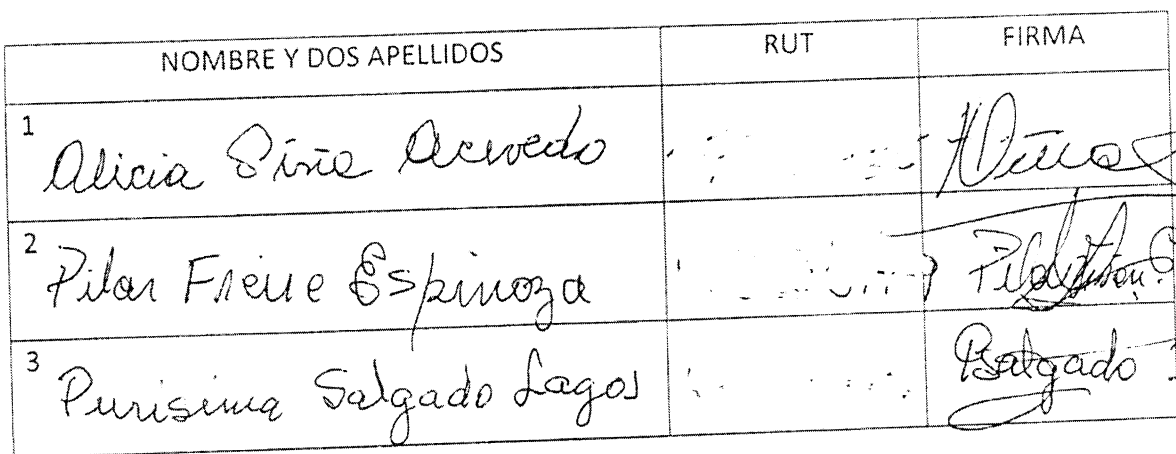 NOMBRE Y DOS APELLIDOS RUT FIRMA
1 Alicia Piña Acevedo
2 Pilar Freire Espinoza Pilar
3 Purisima Salgado Lagos PSalgado